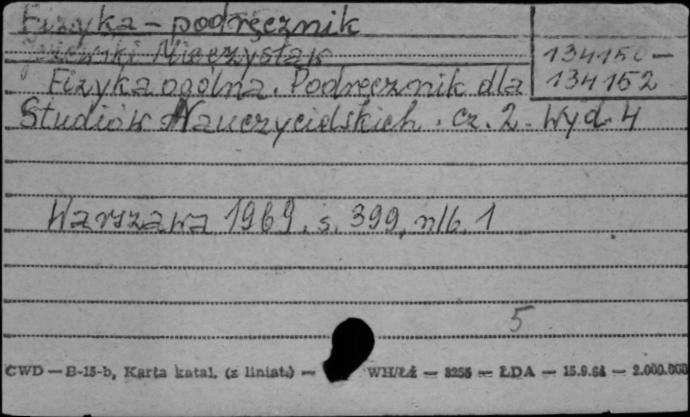 Fizyka - podręcznik
Jeżewski Mieczysław
134150 -
134152
Fizyka ogólna. Podręcznik dla
Studiów Nauczycielskich. cz. 2. Wyd. 4
Warszawa 1969. s. 399, nlb. 1
5
CWD — B-15-b, Karta katal. (z liniat.) — WH/Łź — 3255 — ŁDA — 15.9.64 — 2.000.000